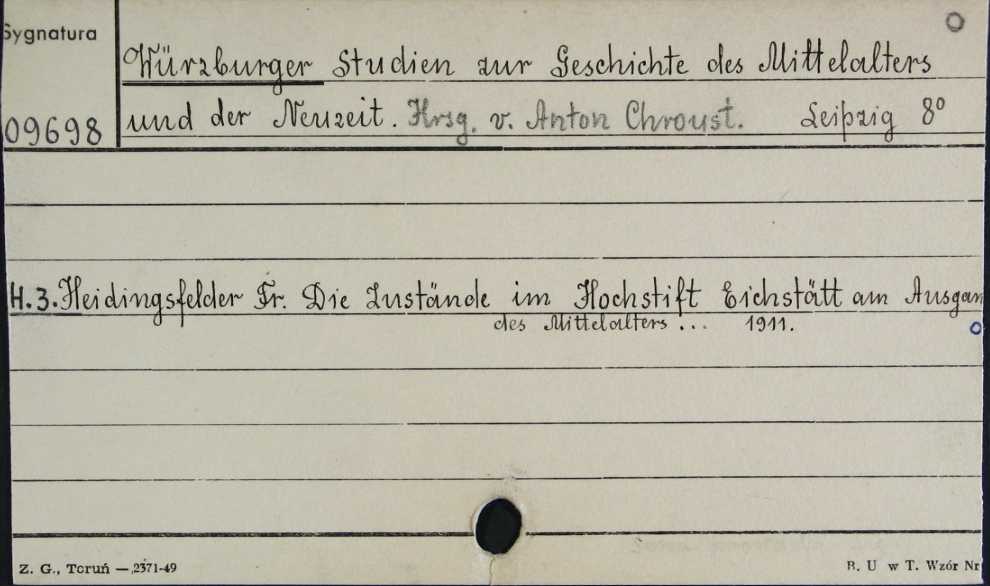 Sygnatura
Würzburger Studien zur Geschichte des Mittelalters
09698 und der Neuzeit. Hrsg. v. Anton Chroust. Leipzig 8º
H.3. Heidingsfelder Fr. Die Zustände im Hochstift Eichstätt am Ausgan
des Mittelalters ... 1911.
Z. G., Toruń — 2371-49 B. U w T. Wzór Nr